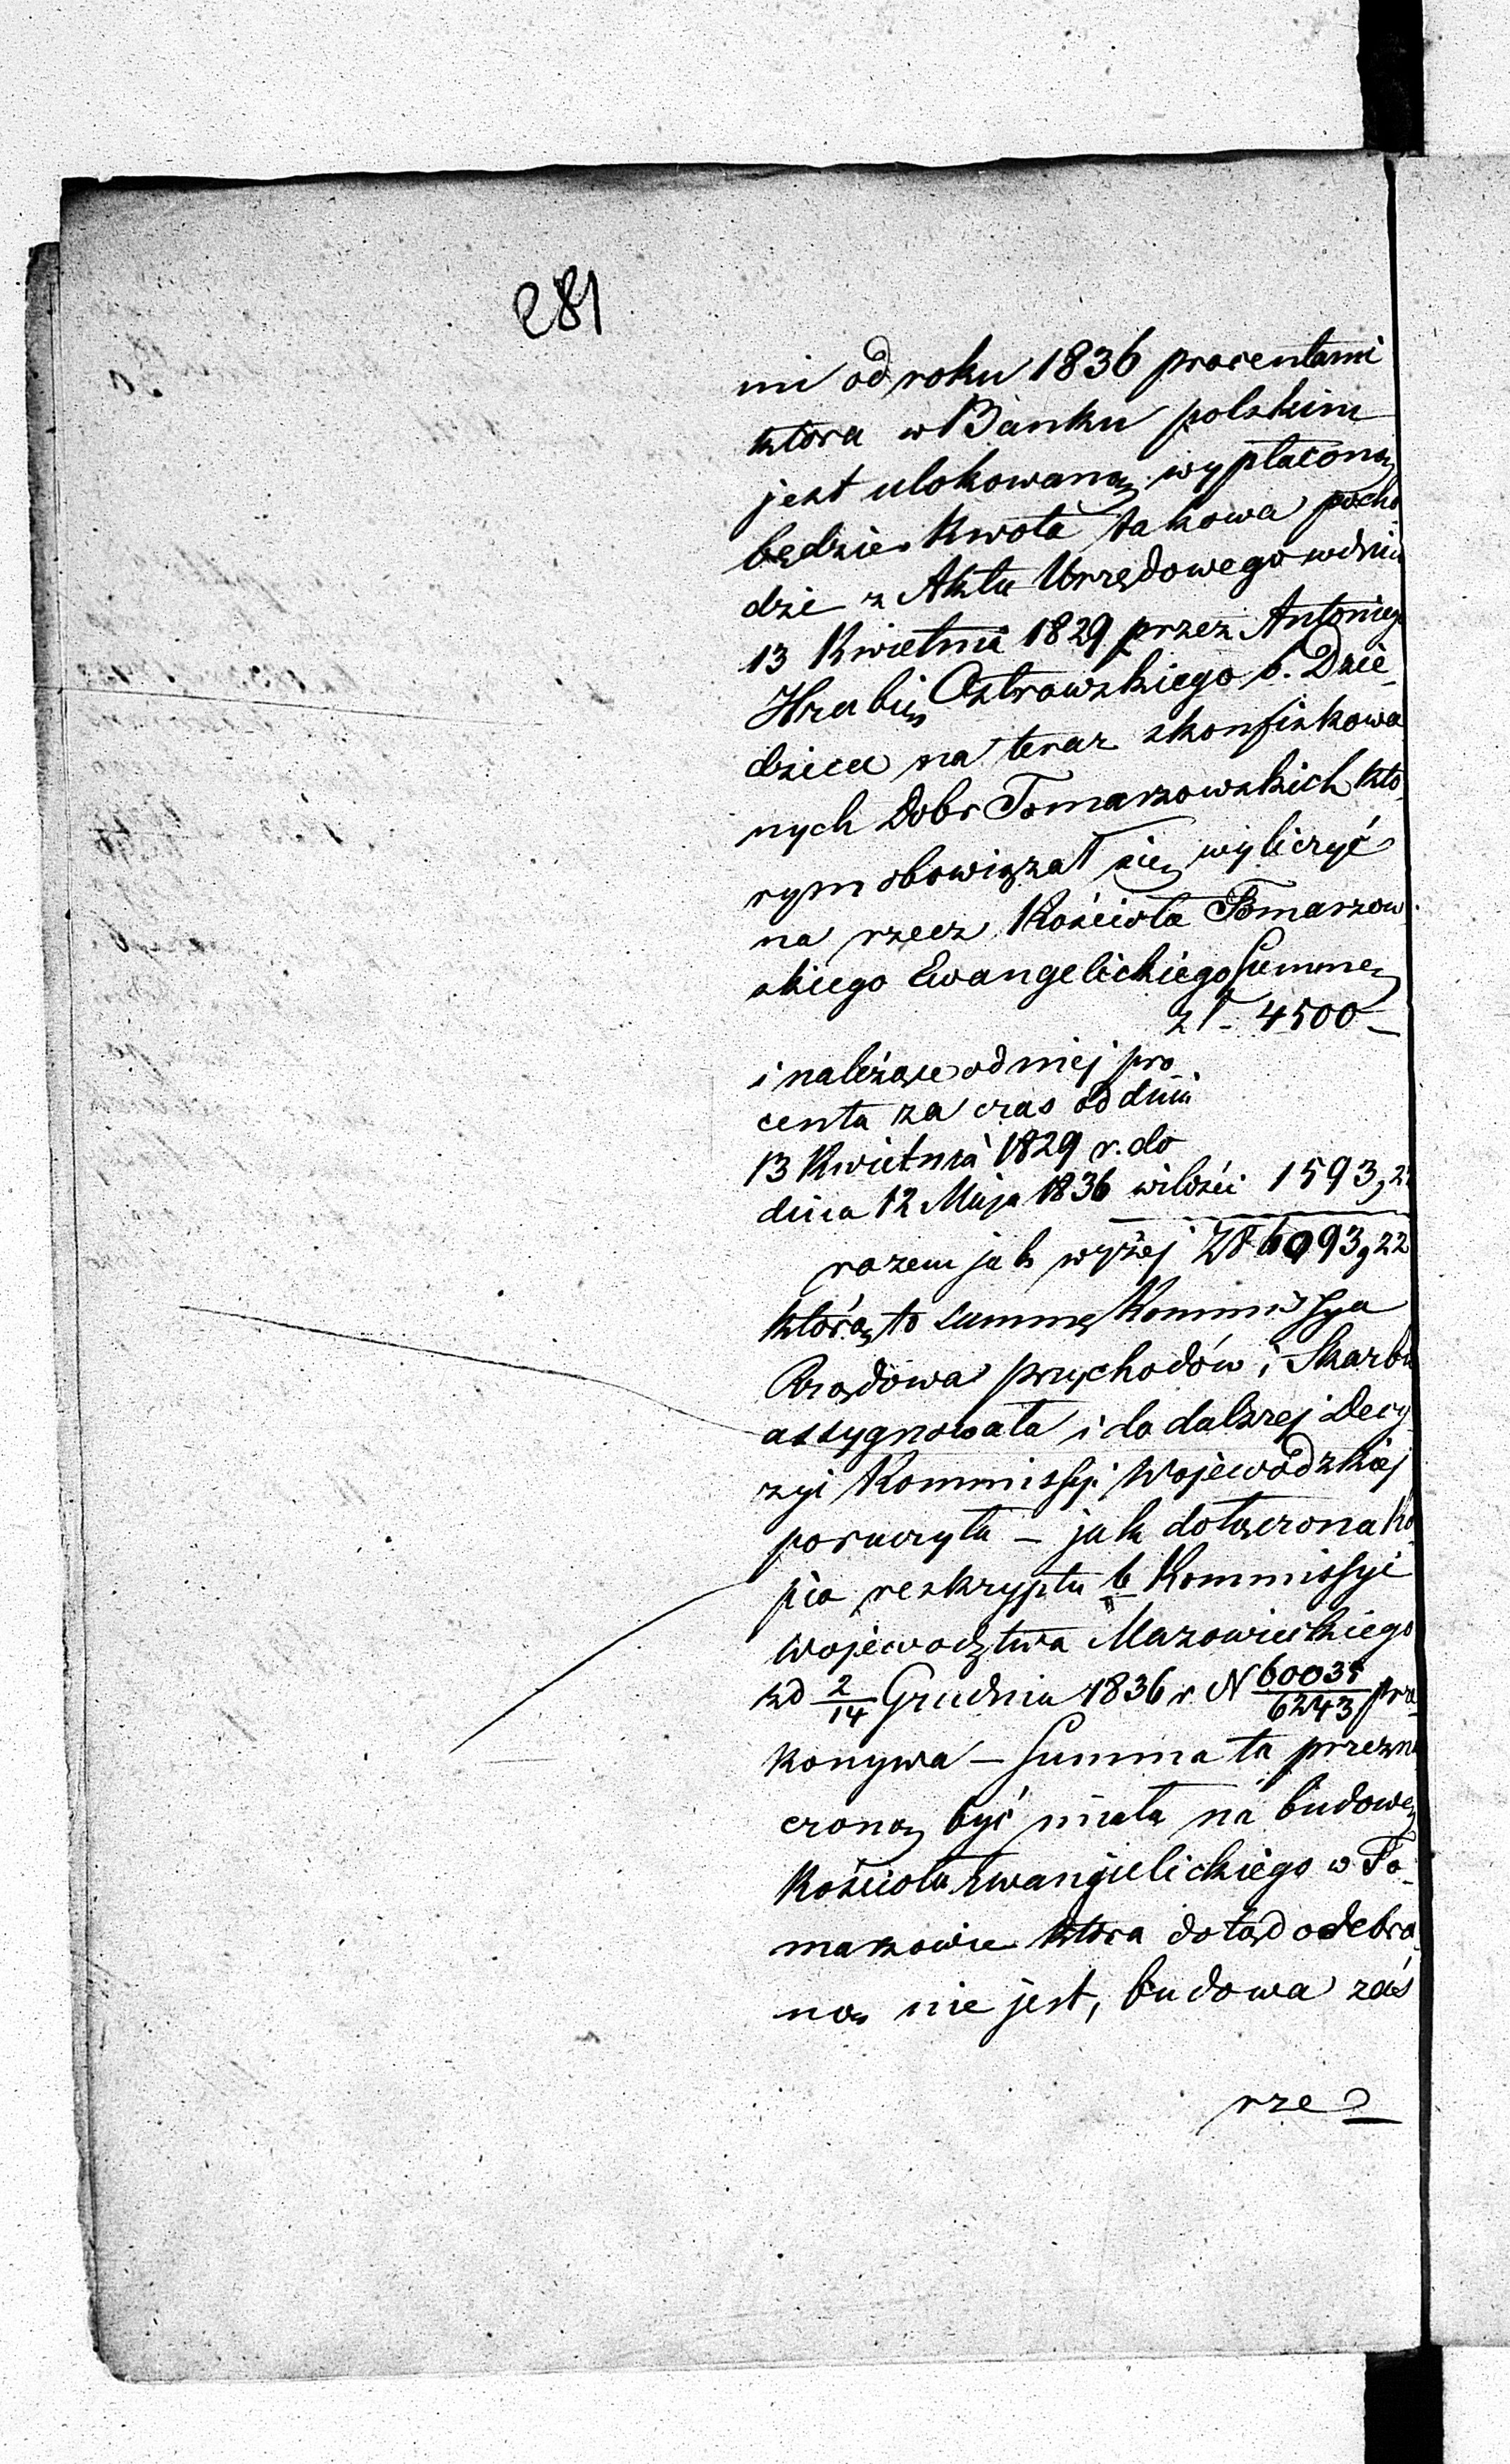 281
mi od roku 1836 procentami
ktora w Banku polskim
jest ulokowaną, wypłaconą
będzie. Kwota takowa pocho
dzi z Aktu Urzędowego w dniu
13 Kwietnia 1829 przez Antoniego
Hrabię Ostrowskiego b. Dzie_
dzica na teraz skonfiskowa
nych Dobr Tomaszowskich kto_
rym obowiązał się wyliczyć
na rzecz Kościoła Tomaszow
skiego Ewangelickiego Summę
zł - 4500 _
i należące od niej pro_
centa za czas od dnia
13 Kwietnia 1829 r. do
dnia 12 Maja 1836 wilości 1593,22
razem jak wyżej Zł 6093,22
którą to summę Kommissya
Rządowa przychodów i Skarbu
assygnowała i do dalszej Decy
zyi Kommissyi Wojewodzkiej
poruczyła – jak dołączona ko
pia reskryptu b Kommissyi
Wojewodztwa Mazowieckiego
zd 2/14 Grudnia 1836 r. N 60035/6243 prze
konywa – Summa ta przezna
czoną być miała na budowę
Kościoła Ewangielickiego w To_
maszowie ktora dotąd odebra_
ną nie jest, budowa zaś
rze